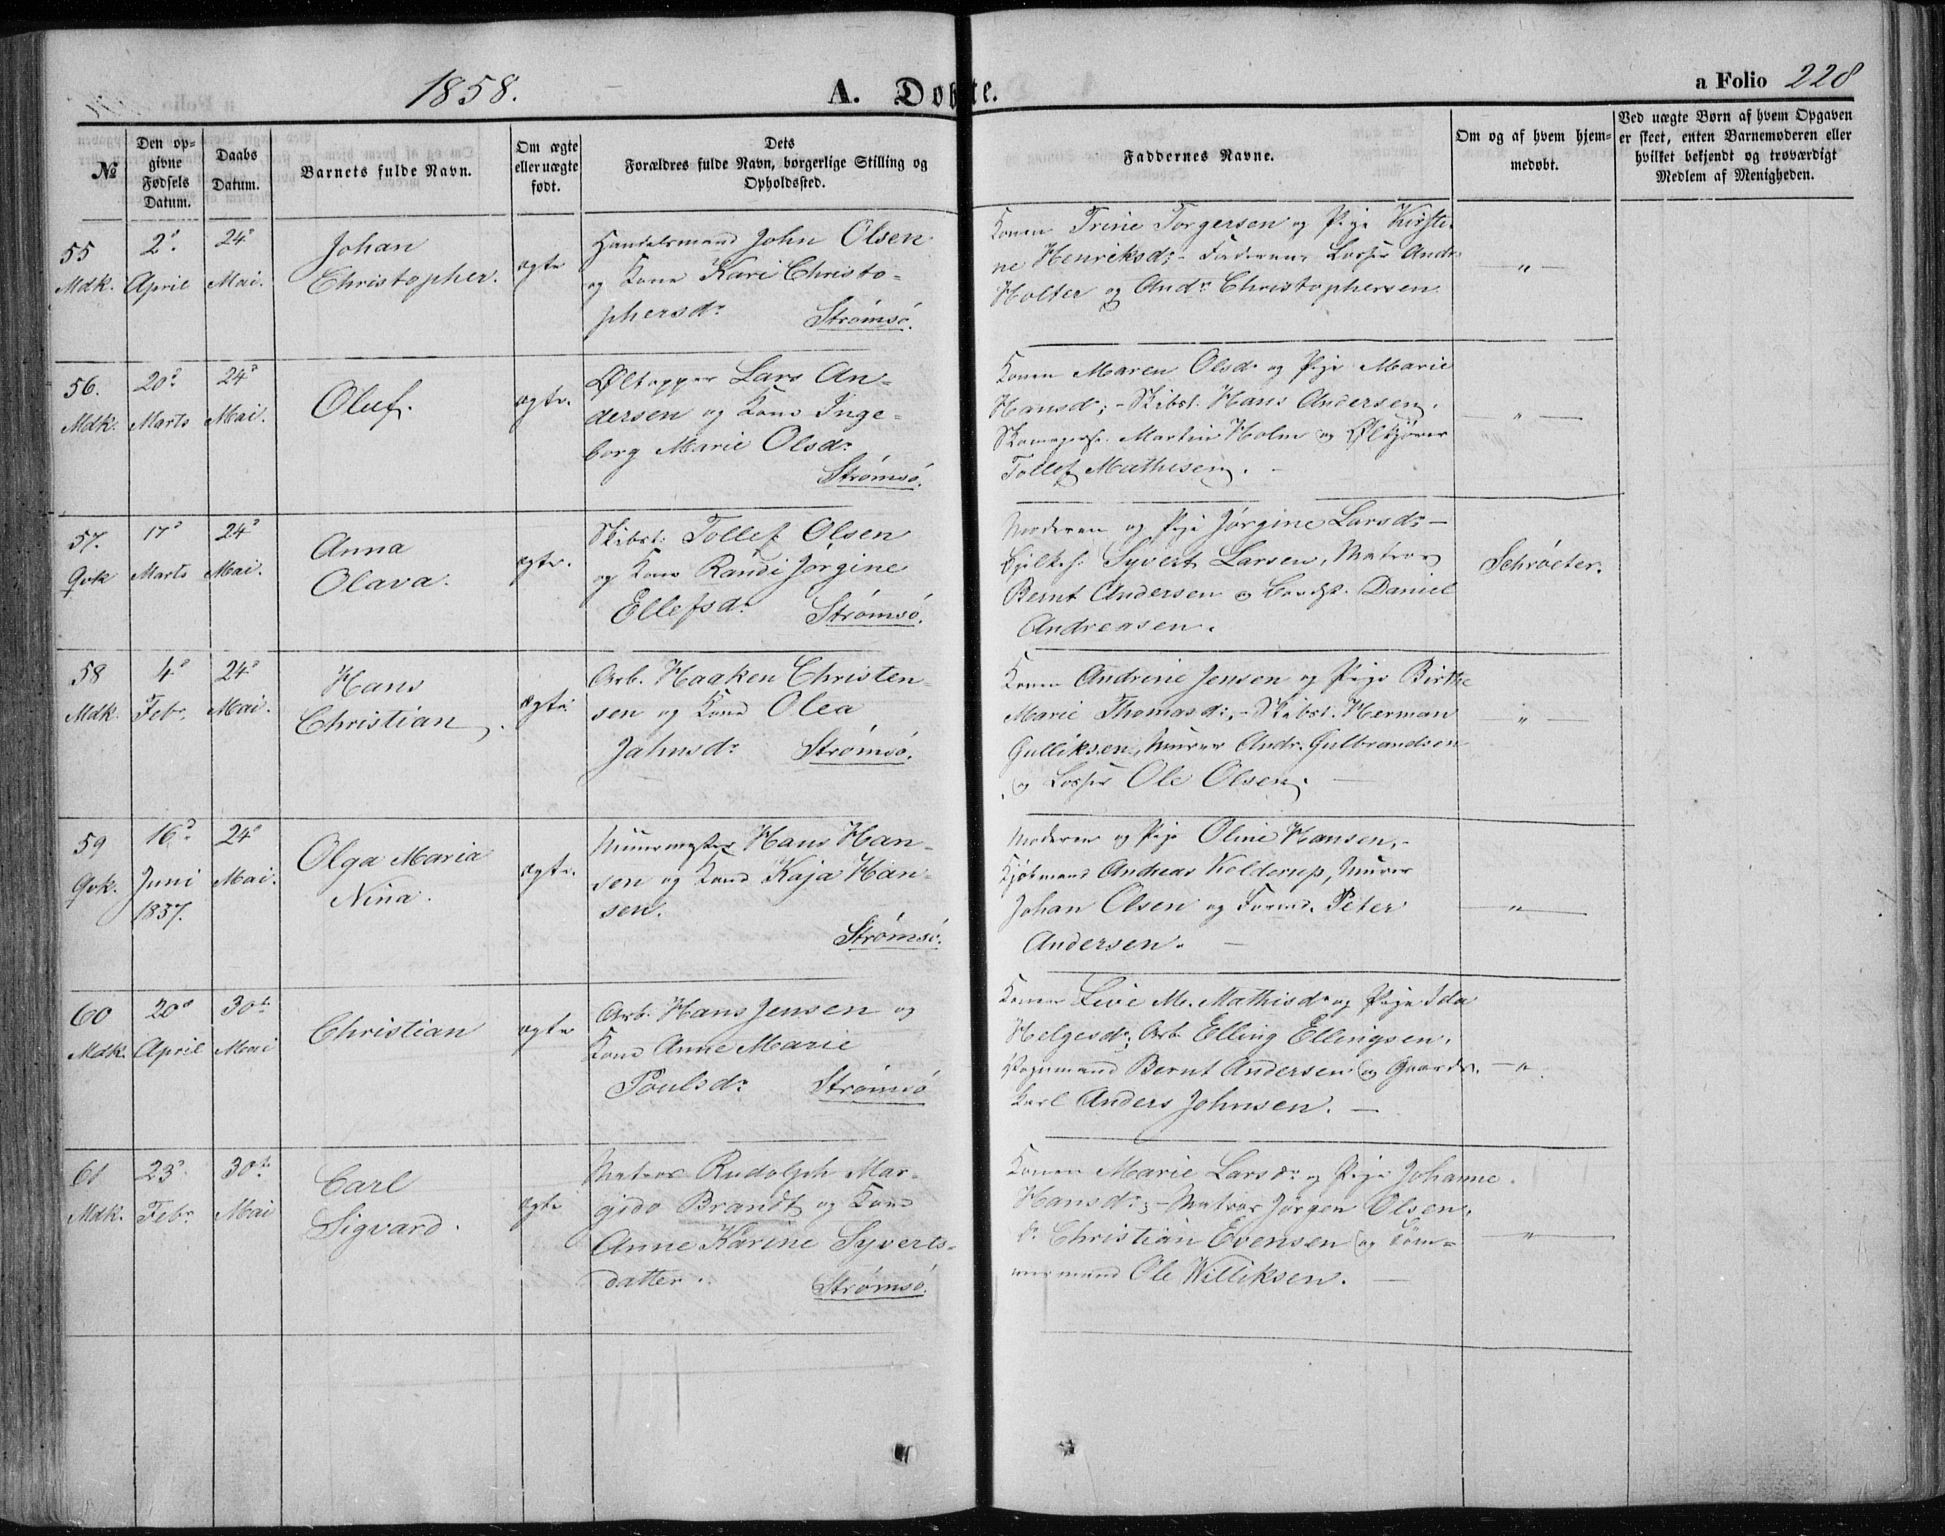 1858.
A. Døbte.
a Folio 228
№
Den opgivne Fødsels Datum.
Daabs Datum.
Barnets fulde Navn.
Om ægte eller uægte født.
Dets Forældres fulde Navn, borgerlige Stilling og Opholdssted.
Faddernes Navne.
Om og af hvem hjemmedøbt.
Ved uægte Børn af hvem Opgaven er skeet, enten Barnemoderen eller hvilket bekjendt og troværdigt Medlem af Menigheden.
55
Mdk.
2d.
April
24d
Mai.
Johan
Christopher.
ægte
Handelsmand John Olsen
og Kone Kari Christo-
phersdr.
Strømsø.
Konen Trine Torgersen og Pige Kirsti-
ne Henriksd; - Faderen, Losser Andr.
Holter og Andr. Christophersen
— " —
56.
Mdk.
20d.
Marts
24d
Mai.
Oluf.
ægte.
Øltapper Lars An-
dersen og Kone Inge-
borg Marie Olsdr.
Strømsø.
Konen Maren Olsdr og Pige Marie
Hansd; - Skibst. Hans Andersen,
Martin Holm og
Tollef Mathisen. -
" —
57.
Qvk
17d
Marts
24d
Mai.
Anna
Olava.
ægte.
Skibst. Tollef Olsen
og Kone Randi Jørgine
Ellefsdr.
Strømsø.
Moderen og Pige Jørgine Larsd; -
Syvert Larsen, Matros
Bernt Andersen og Daniel
Andreasen.
Schrøeter.
58
Mdk.
4d
Febr.
24d
Mai.
Hans
Christian.
ægte.
Arb. Haaken Christen-
sen og Kone Olea
Jahnsdr.
Strømsø.
Konen Andrine Jensen og Pige Birthe
Marie Thomasd; - Skibst. Herman
Gulliksen, Murer Andr. Gulbrandsen
og Losser Ole Olsen. —
" —
59
Qvk.
16d.
Juni
1857.
24d
Mai.
Olga Maria
Nina.
ægte.
Muurmester Hans Han-
sen og Kone Kaja Han-
sen.
Strømsø.
Moderen og Pige Oline Hansen, -
Kjøbmand Andreas Kolderup, Murer
Johan Olsen og Peter
Andersen. —
— " —
60
Mdk.
20d
April
30te
Mai
Christian
ægte
Arb. Hans Jensen og
Kone Anne Marie
Poulsdr.
Strømsø
Konen Live M. Mathisdr og Pige Ida
Helgesd; Arb. Elling Ellingsen,
Vognmand Bernt Andersen og Gaards-
karl Anders Johnsen. —
— " .
61
Mdk.
23d
Febr.
30te
Mai
Carl
Sigvard.
ægte
Matros Rudolph Mar-
gido Brandt og Kone
Anne Karine Syverts-
datter.
Strømsø.
Konen Marie Larsdr og Pige Johanne
Hansdr; - Matros Jørgen Olsen,
do Christian Evensen og Tøm-
mermand Ole Williksen. —
— " —